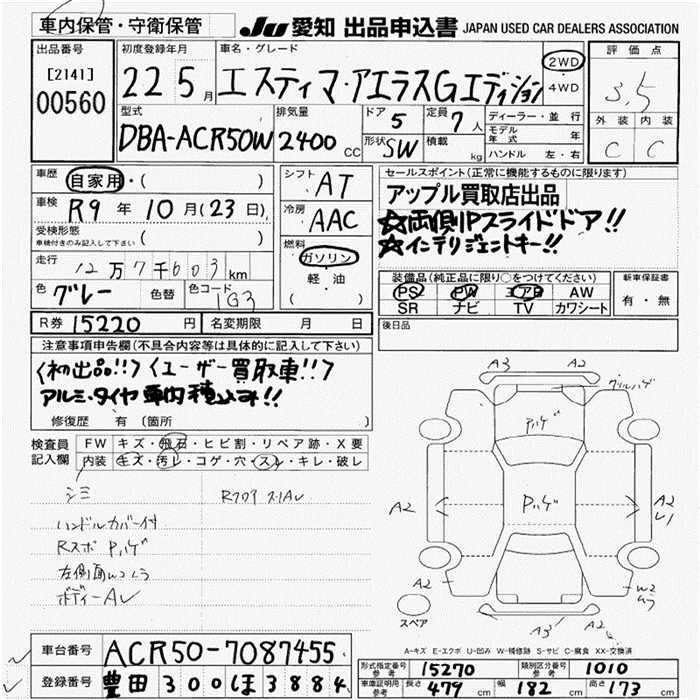 車内保管・守衛保管
JU 愛知 出品申込書 JAPAN USED CAR DEALERS ASSOCIATION
出品番号
[2141]
00560
初度登録年月
22 5月
車名・グレード
エスティマ・アエラスGエディション
2WD
・
4WD
評価点
3.5
外装 内装
C C
型式
DBA-ACR50W
排気量
2400 CC
ドア
5
形状 SW
定員
7人
積載 kg
ディーラー・並行
モデル年式 年
ハンドル 左・右
車歴 自家用・( )
車検 R9年10月(23日)
受検形態
車検付きのみ記入して下さい ( )
走行 12万7千603km
色 グレー 色替 色コード 1G3
シフト AT
冷房 AAC
燃料
ガソリン
・
軽油
( )
セールスポイント(正常に機能するものに限ります)
アップル買取店出品
☆両側Pスライドドア!!
☆インテリジェントキー!!
装備品(純正品に限り○をつけてください)
PS PW エアB AW
SR ナビ TV カワシート
新車保証書
有・無
後日品
R券 15220円 名変期限 月 日
注意事項申告欄(不具合内容等は具体的に記入して下さい)
〈初出品!!〉〈ユーザー買取車!!〉
アルミ・タイヤ車内積込み!!
修復歴 有 〔箇所
検査員記入欄
FW キズ・飛石・ヒビ割・リペア跡・X要
内装 キズ・汚レ・コゲ・穴・スレ・キレ・破レ
シミ
ハンドルカバー付
Rスポ Pハゲ
左側面W2
ボディーAU
A3 A2
グリルハゲ
Pハゲ
Pハゲ
A2
A2
A2
W2
A3 A2
スペア
A-キズ E-エクボ U-凹み W-補修跡 S-サビ C-腐食 XX-交換済
車台番号 ACR50-7087455
登録番号 豊田300ほ3884
型式指定番号 参考 15270 類別区分番号 参考 1010
車庫証明用 参考 長さ 479cm 幅 182cm 高さ 173cm